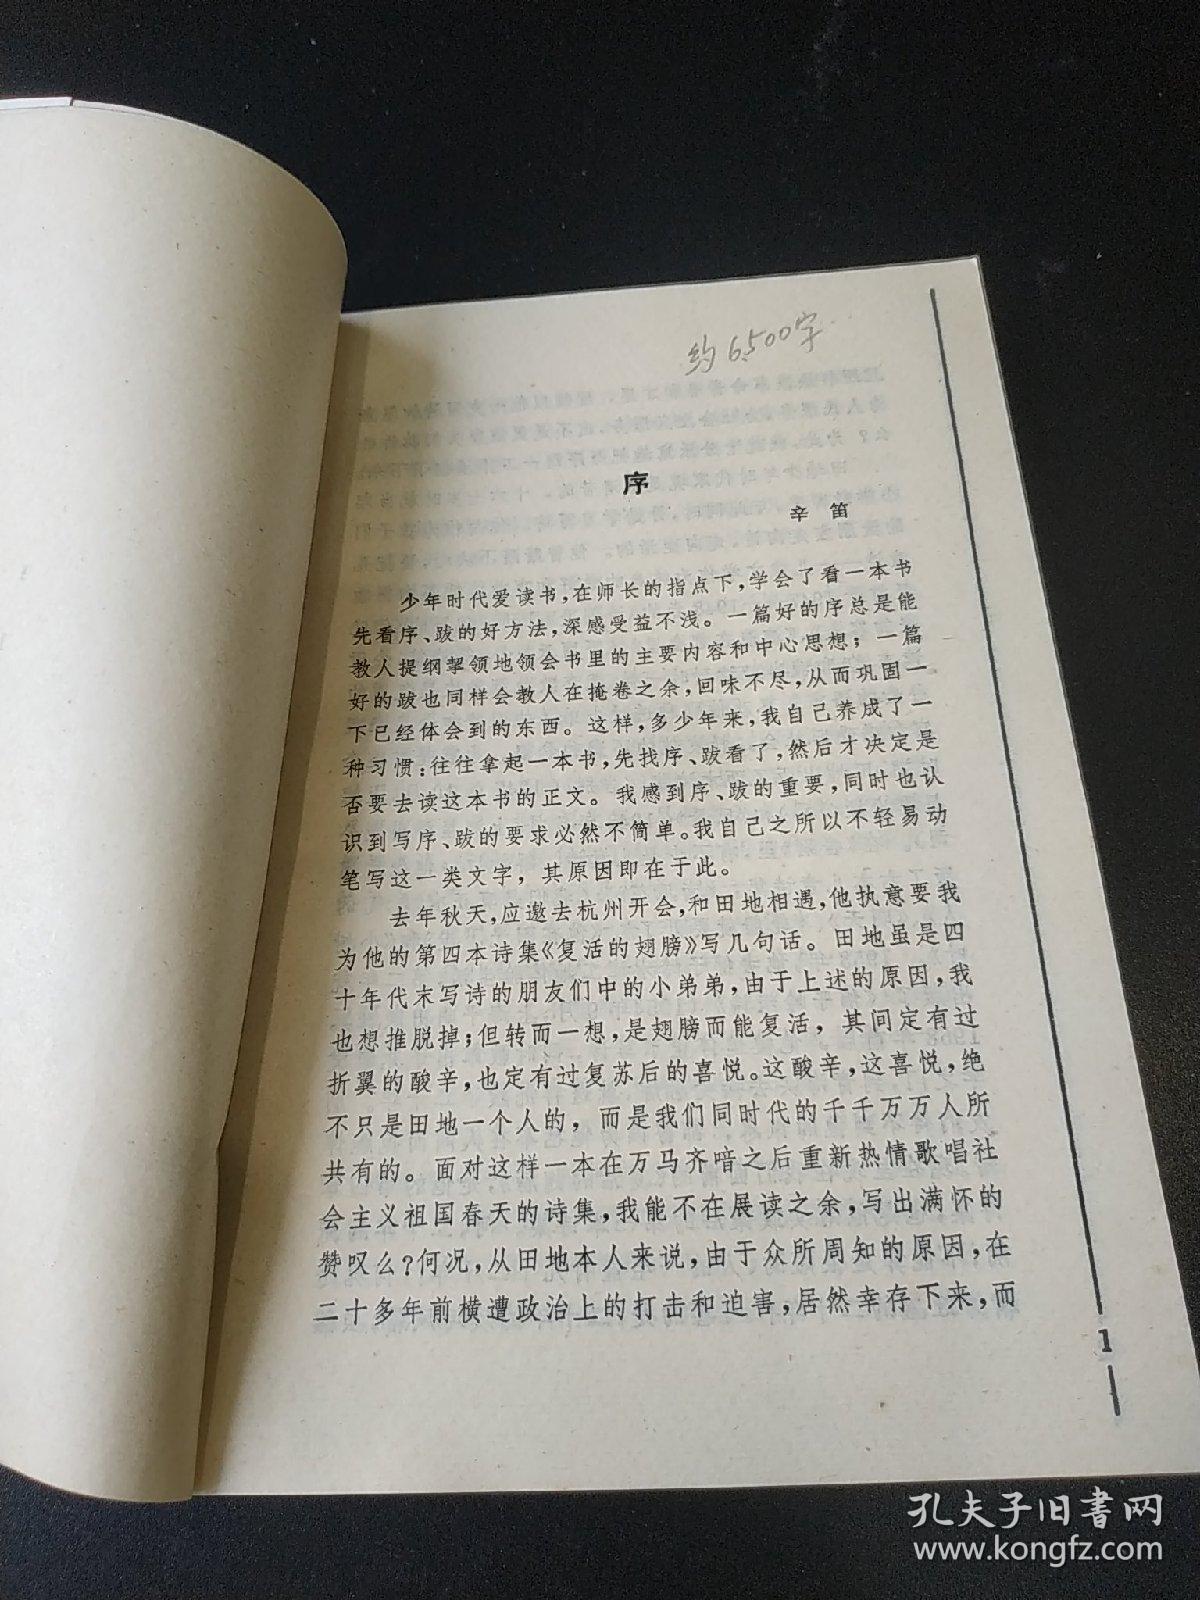 约6500字
序
辛笛
少年时代爱读书，在师长的指点下，学会了看一本书
先看序、跋的好方法，深感受益不浅。一篇好的序总是能
教人提纲挈领地领会书里的主要内容和中心思想；一篇
好的跋也同样会教人在掩卷之余，回味不尽，从而巩固一
下已经体会到的东西。这样，多少年来，我自己养成了一
种习惯：往往拿起一本书，先找序、跋看了，然后才决定是
否要去读这本书的正文。我感到序、跋的重要，同时也认
识到写序、跋的要求必然不简单。我自己之所以不轻易动
笔写这一类文字，其原因即在于此。
去年秋天，应邀去杭州开会，和田地相遇，他执意要我
为他的第四本诗集《复活的翅膀》写几句话。田地虽是四
十年代末写诗的朋友们中的小弟弟，由于上述的原因，我
也想推脱掉；但转而一想，是翅膀而能复活，其间定有过
折翼的酸辛，也定有过复苏后的喜悦。这酸辛，这喜悦，绝
不只是田地一个人的，而是我们同时代的千千万万人所
共有的。面对这样一本在万马齐喑之后重新热情歌唱社
会主义祖国春天的诗集，我能不在展读之余，写出满怀的
赞叹么？何况，从田地本人来说，由于众所周知的原因，在
二十多年前横遭政治上的打击和迫害，居然幸存下来，而
1
孔夫子旧书网
www.kongfz.com